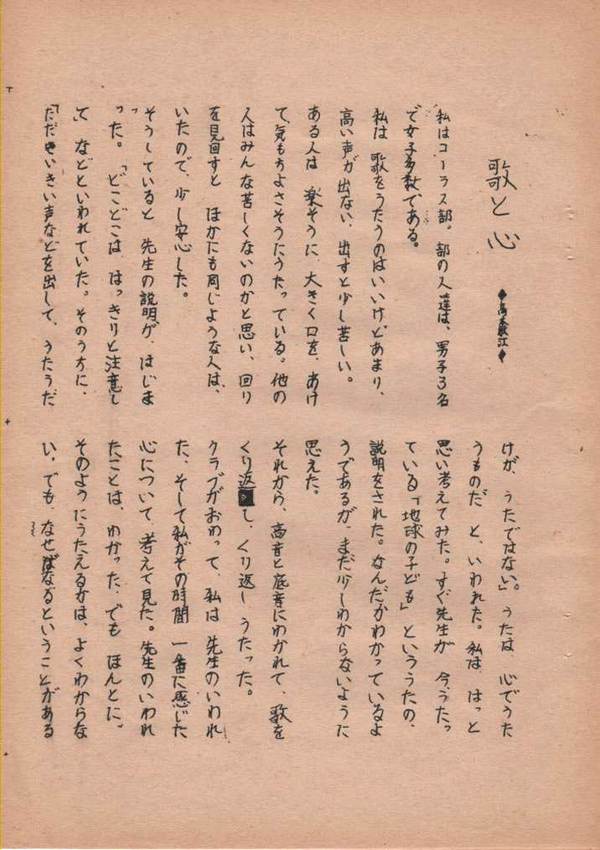 歌と心
私はコーラス部。部の人達は、男子3名
で女子多数である。
私は 歌をうたうのはいいけど、あまり、
高い声が出ない、出すと少し苦しい。
ある人は 楽そうに、大きく口を、あけ
て、気もちよさそうにうたっている。他の
人はみんな苦しくないのかと思い、回り
を見回すと ほかにも同じような人は、
いたので、少し安心した。
そうしていると 先生の説明が、はじま
った。「どこどこは はっきりと注意し
て」などといわれていた。そのうちに、
「ただきいきい声などを出して、うたうだ
けが、うたではない。」うたは、心でうた
うものだ と、いわれた。私は、はっと
思い考えてみた。すぐ先生が 今、うたっ
ている「地球の子ども」といううたの、
説明をされた。なんだかわかっているよ
うであるが、まだ少しわからないように
思えた、
それから、高音と底音にわかれて、歌を
くり返し、くり返し うたった。
クラブがおわって、私は 先生のいわれ
た、そして私がその時間 一番に感じた
心について、考えて見た。先生のいわれ
たことは、わかった、でも ほんとに。
そのようにうたえるかは、よくわからな
い、でも、なせばなるということがある